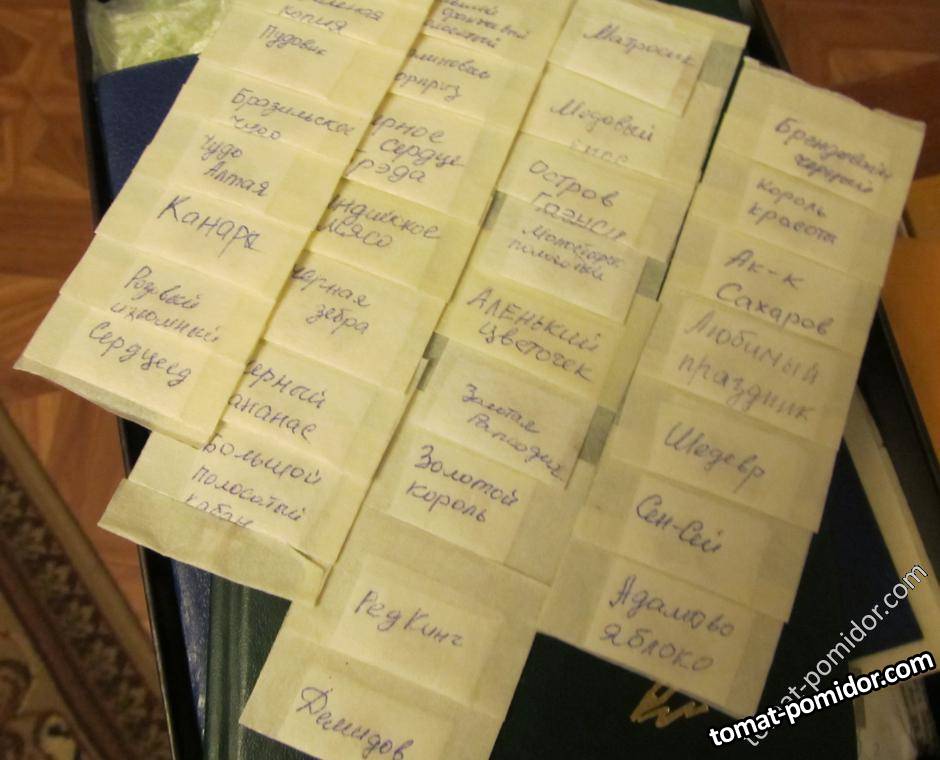 копия
Пудовик
Бразильское
чудо
Чудо
Алтая
Канары
Розовый
изюмный
Сердцеед
полосатый
ерное
Сердце
Брэда
ндийское
мясо
черная
зебра
ерный
ананас
Большой
полосатый
кабан
Матросик
Медовый
Остров
Алтайский
Аленький
Цветочек
Золотая
Рапсодия
Золотой
король
Ред Кинг
Демидов
черный
король
красоты
Ак-к
Сахаров
Любимый
праздник
Шедевр
Сен-Сей
Адамово
яблоко
tomat-pomidor.com
tomat-pomidor.com